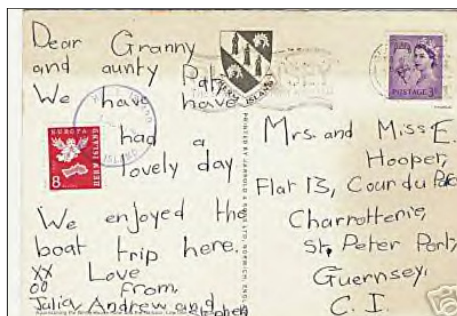 Dear Granny
and aunty Pam
We have have
had a
lovely day.
We enjoyed the
boat trip here.
XX Love
00 from
Julia, Andrew and Stephen
HERM ISLAND
ISLAND
EUROPA
HERM ISLAND
8
POSTAGE 3D
PRINTED BY JARROLD & SONS LTD, NORWICH, ENGLAND
Mrs. and Miss E.
Hooper,
Flat 13, Cour du Parc
Charrotterie,
St. Peter Port,
Guernsey.
C. I.